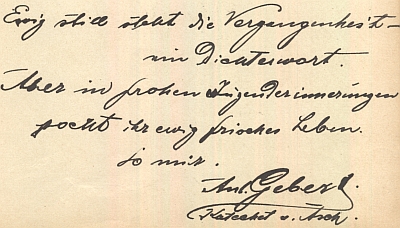 Ewig still steht die Vergangenheit –
ein Dichterwort.
Aber in frohen Jugenderinnerungen
pocht ihr ewig frisches Leben.
So mir.
Ant. Gebert.
Katechet v. Asch.